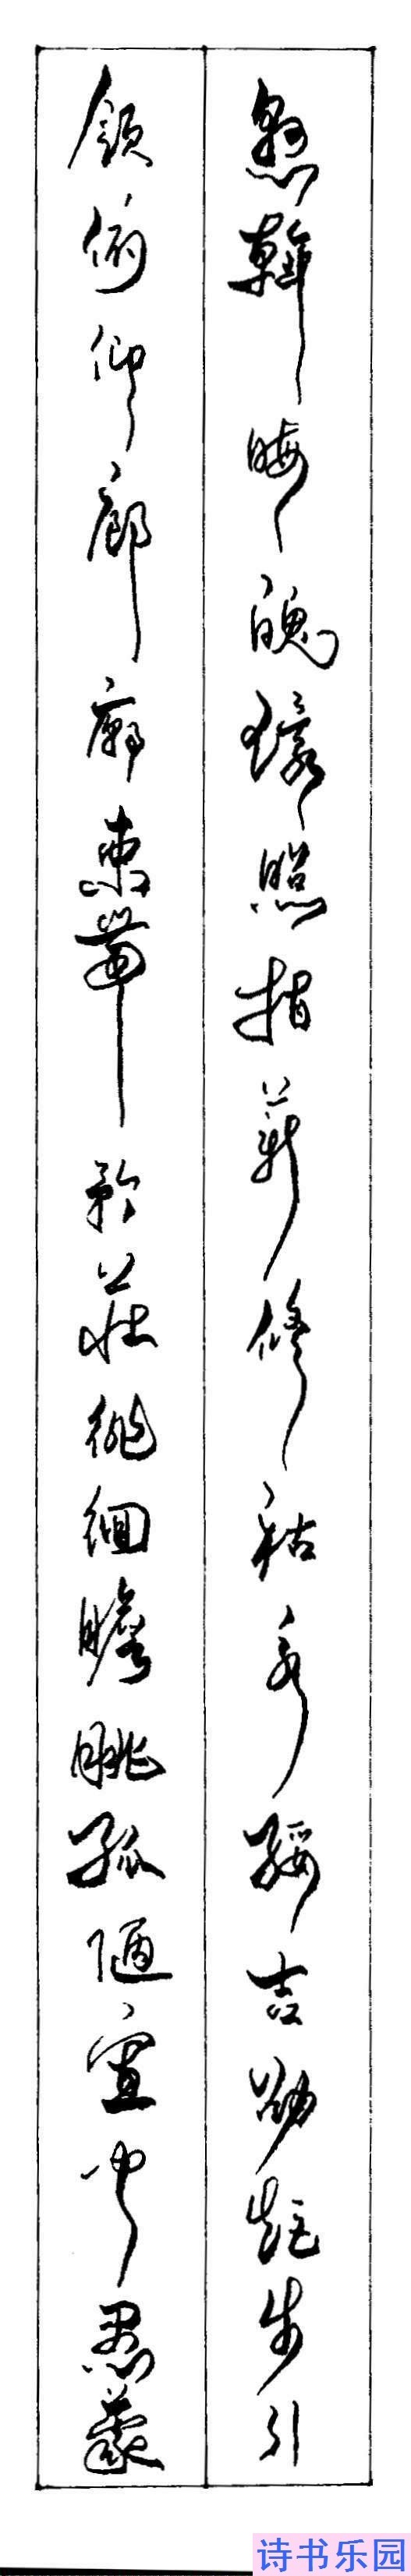 懸斡晦魄環照指薪修祜永綏吉劭矩步引
領俯仰廊廟束帶矜莊徘徊瞻眺孤陋寡聞愚蒙
诗书乐园